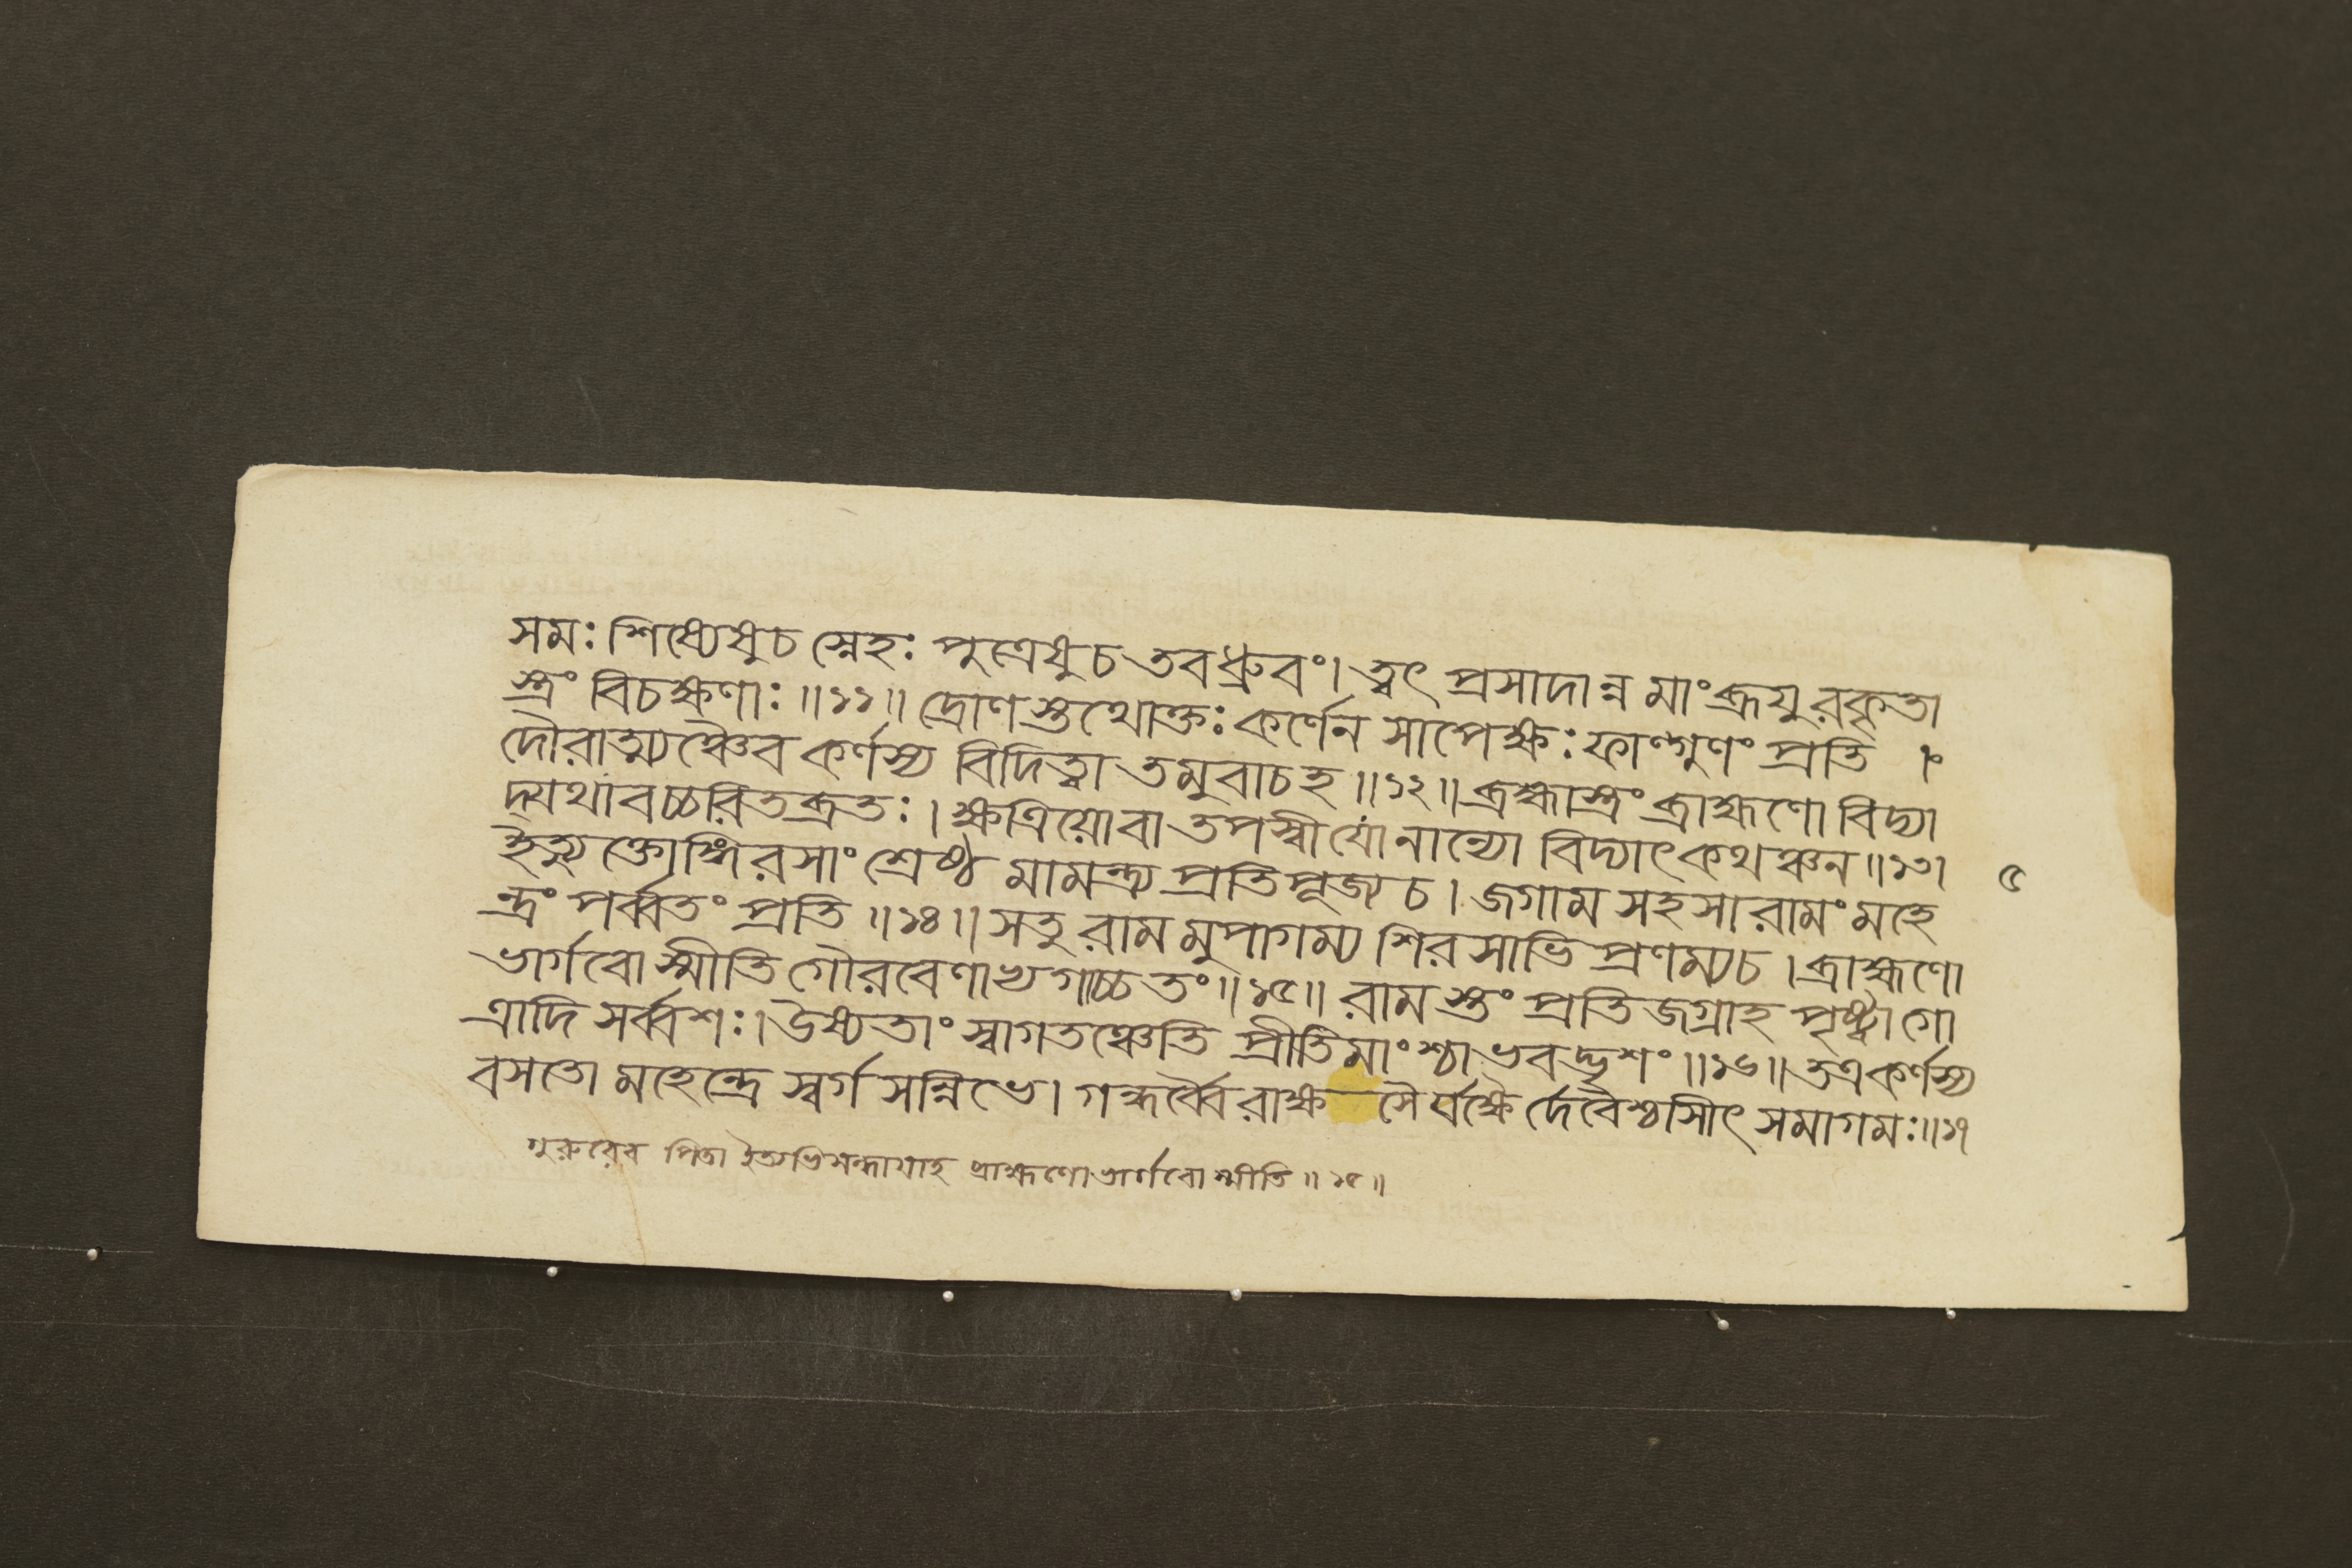 সমঃ শিষ্যেষুচ স্নেহঃ পুত্রেষুচ তবধ্রুবং। ত্বৎ প্রসাদান্ন মাংব্রূযুরকৃতা
স্ত্রং বিচক্ষণাঃ॥১১॥ দ্রোণস্তথোক্তঃ কর্ণেন সাপেক্ষঃ ফাল্গুণং প্রতি ।
দৌরাত্ম্যঞ্চৈব কর্ণস্য বিদিত্বা তমুবাচহ॥১২॥ ব্রহ্মাস্ত্রং ব্রাহ্মণো বিদ্যা
দ্যথাবচ্চরিতব্রতঃ। ক্ষত্রিয়োবা তপস্বীযোনান্যো বিদ্যাৎকথঞ্চন॥১৩।
ইত্যুক্তোঙ্গিরসাং শ্রেষ্ঠ মামন্ত্র্য প্রতিপূজ্য চ। জগাম সহসা রামং মহে
ন্দ্রং পর্ব্বতং প্রতি॥১৪॥ সতু রামমুপাগম্য শিরসাভি প্রণম্যচ। ব্রাহ্মণো
ভার্গবোস্মীতি গৌরবেণাভ্যগাচ্চতং॥১৫॥ রামস্তং প্রতিজগ্রাহ পৃষ্ট্বাগো
ত্রাদি সর্ব্বশঃ।উষ্যতাং স্বাগতঞ্চেতি প্রীতিমাংশ্চাভবদ্ভৃশং॥১৬॥ তত্রকর্ণস্য
বসতো মহেন্দ্রে স্বর্গসন্নিভে। গন্ধর্ব্বৈ রাক্ষ সৈর্যক্ষৈর্দেবৈশ্চাসীৎ সমাগমঃ॥১৭
গুরুরেব পিতা ইত্যভিসন্ধায়াহ ব্রাহ্মণোভার্গবোস্মীতি॥১৫॥
৫